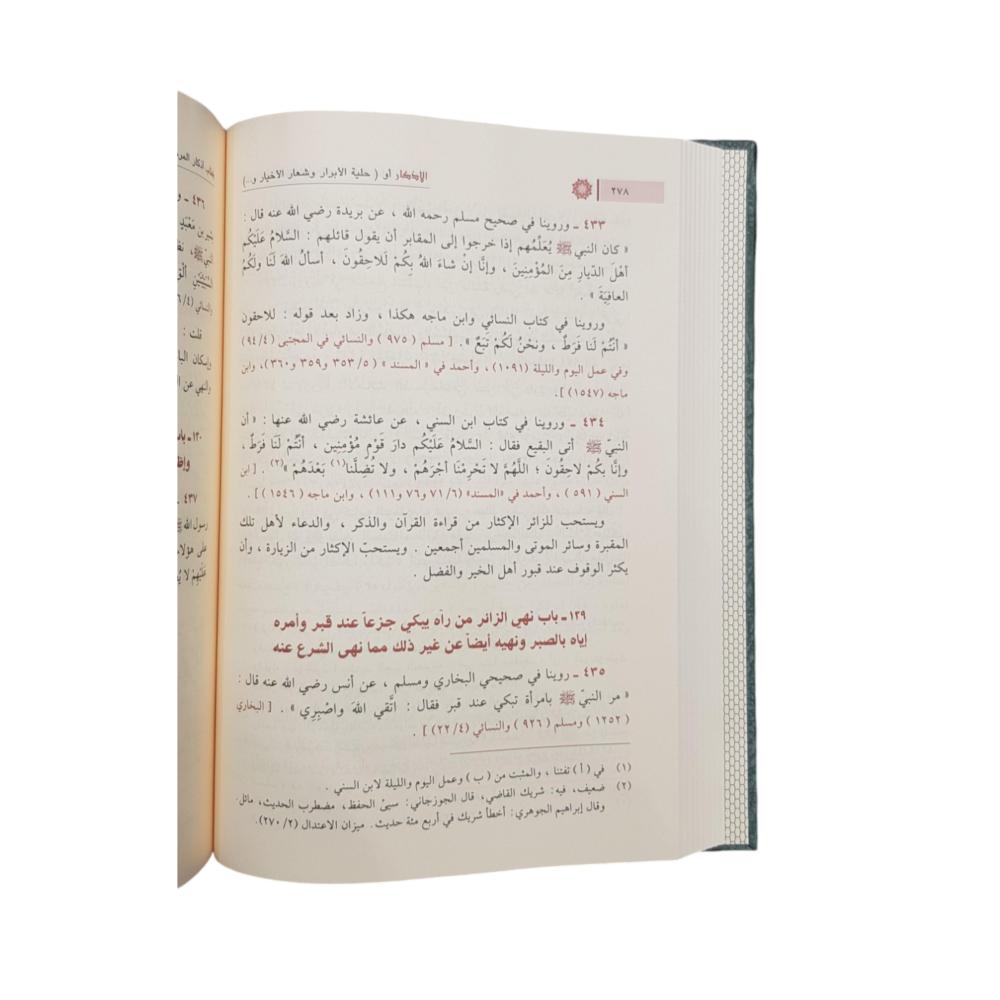 ٢٧٨
الأذكار أو ( حلية الأبرار وشعار الأخيار و...)
٤٣٣ ـ وروينا في صحيح مسلم رحمه الله ، عن بريدة رضي الله عنه قال :
« كان النبي ﷺ يُعَلِّمُهم إذا خرجوا إلى المقابر أن يقول قائلهم : السَّلامُ عَلَيْكُم
أهْلَ الدّيارِ مِنَ المُؤْمِنِينَ ، وإنَّا إنْ شاءَ اللهُ بِكُمْ لَلاحِقُونَ ، أسألُ اللهَ لَنَا ولَكُمُ
العافِيَةَ » .
وروينا في كتاب النسائي وابن ماجه هكذا ، وزاد بعد قوله : للاحقون
« أنْتُمْ لَنا فَرَطٌ ، ونَحْنُ لَكُمْ تَبَعٌ » . [ مسلم ( ٩٧٥ ) والنسائي في المجتبى (٩٤/٤)
وفي عمل اليوم والليلة (١٠٩١) ، وأحمد في « المسند » ( ٣٥٣/٥ و٣٥٩ و٣٦٠)، وابن
ماجه (١٥٤٧) ].
٤٣٤ ـ وروينا في كتاب ابن السني ، عن عائشة رضي الله عنها : « أن
النبيّ ﷺ أتى البقيع فقال : السَّلامُ عَلَيْكُم دارَ قَوْمٍ مُؤْمِنِين ، أنْتُمْ لَنا فَرَطٌ ،
وإنَّا بكُمْ لاحِقُونَ ؛ اللَّهُمَّ لا تَحْرِمْنَا أجْرَهُمْ ، ولا تُضِلَّنا(١) بَعْدَهُمْ »(٢) . [ ابن
السني ( ٥٩١ ) ، وأحمد في «المسند» (٧١/٦ و٧٦ و١١١) ، وابن ماجه ( ١٥٤٦ ) ] .
ويستحب للزائر الإكثار من قراءة القرآن والذكر ، والدعاء لأهل تلك
المقبرة وسائر الموتى والمسلمين أجمعين . ويستحبّ الإكثار من الزيارة ، وأن
يكثر الوقوف عند قبور أهل الخير والفضل .
١٣٩ـ باب نهي الزائر من رآه يبكي جزعاً عند قبر وأمره
إياه بالصبر ونهيه أيضاً عن غير ذلك مما نهى الشرع عنه
٤٣٥ ـ روينا في صحيحي البخاري ومسلم ، عن أنس رضي الله عنه قال :
« مر النبيّ ﷺ بامرأة تبكي عند قبر فقال : اتَّقي اللهَ واصْبِرِي » . [ البخاري
( ١٢٥٢ ) ومسلم ( ٩٢٦ ) والنسائي (٢٢/٤) ] .
(١) في ( أ ) تفتنا ، والمثبت من ( ب ) وعمل اليوم والليلة لابن السني .
(٢) ضعيف، فيه: شريك القاضي، قال الجوزجاني: سيئ الحفظ، مضطرب الحديث، مائل.
وقال إبراهيم الجوهري: أخطأ شريك في أربع مئة حديث. ميزان الاعتدال (٢٧٠/٢).
٤٣٦ ـ
قلت :
٤٣٧ ـ
رسول الله ﷺ